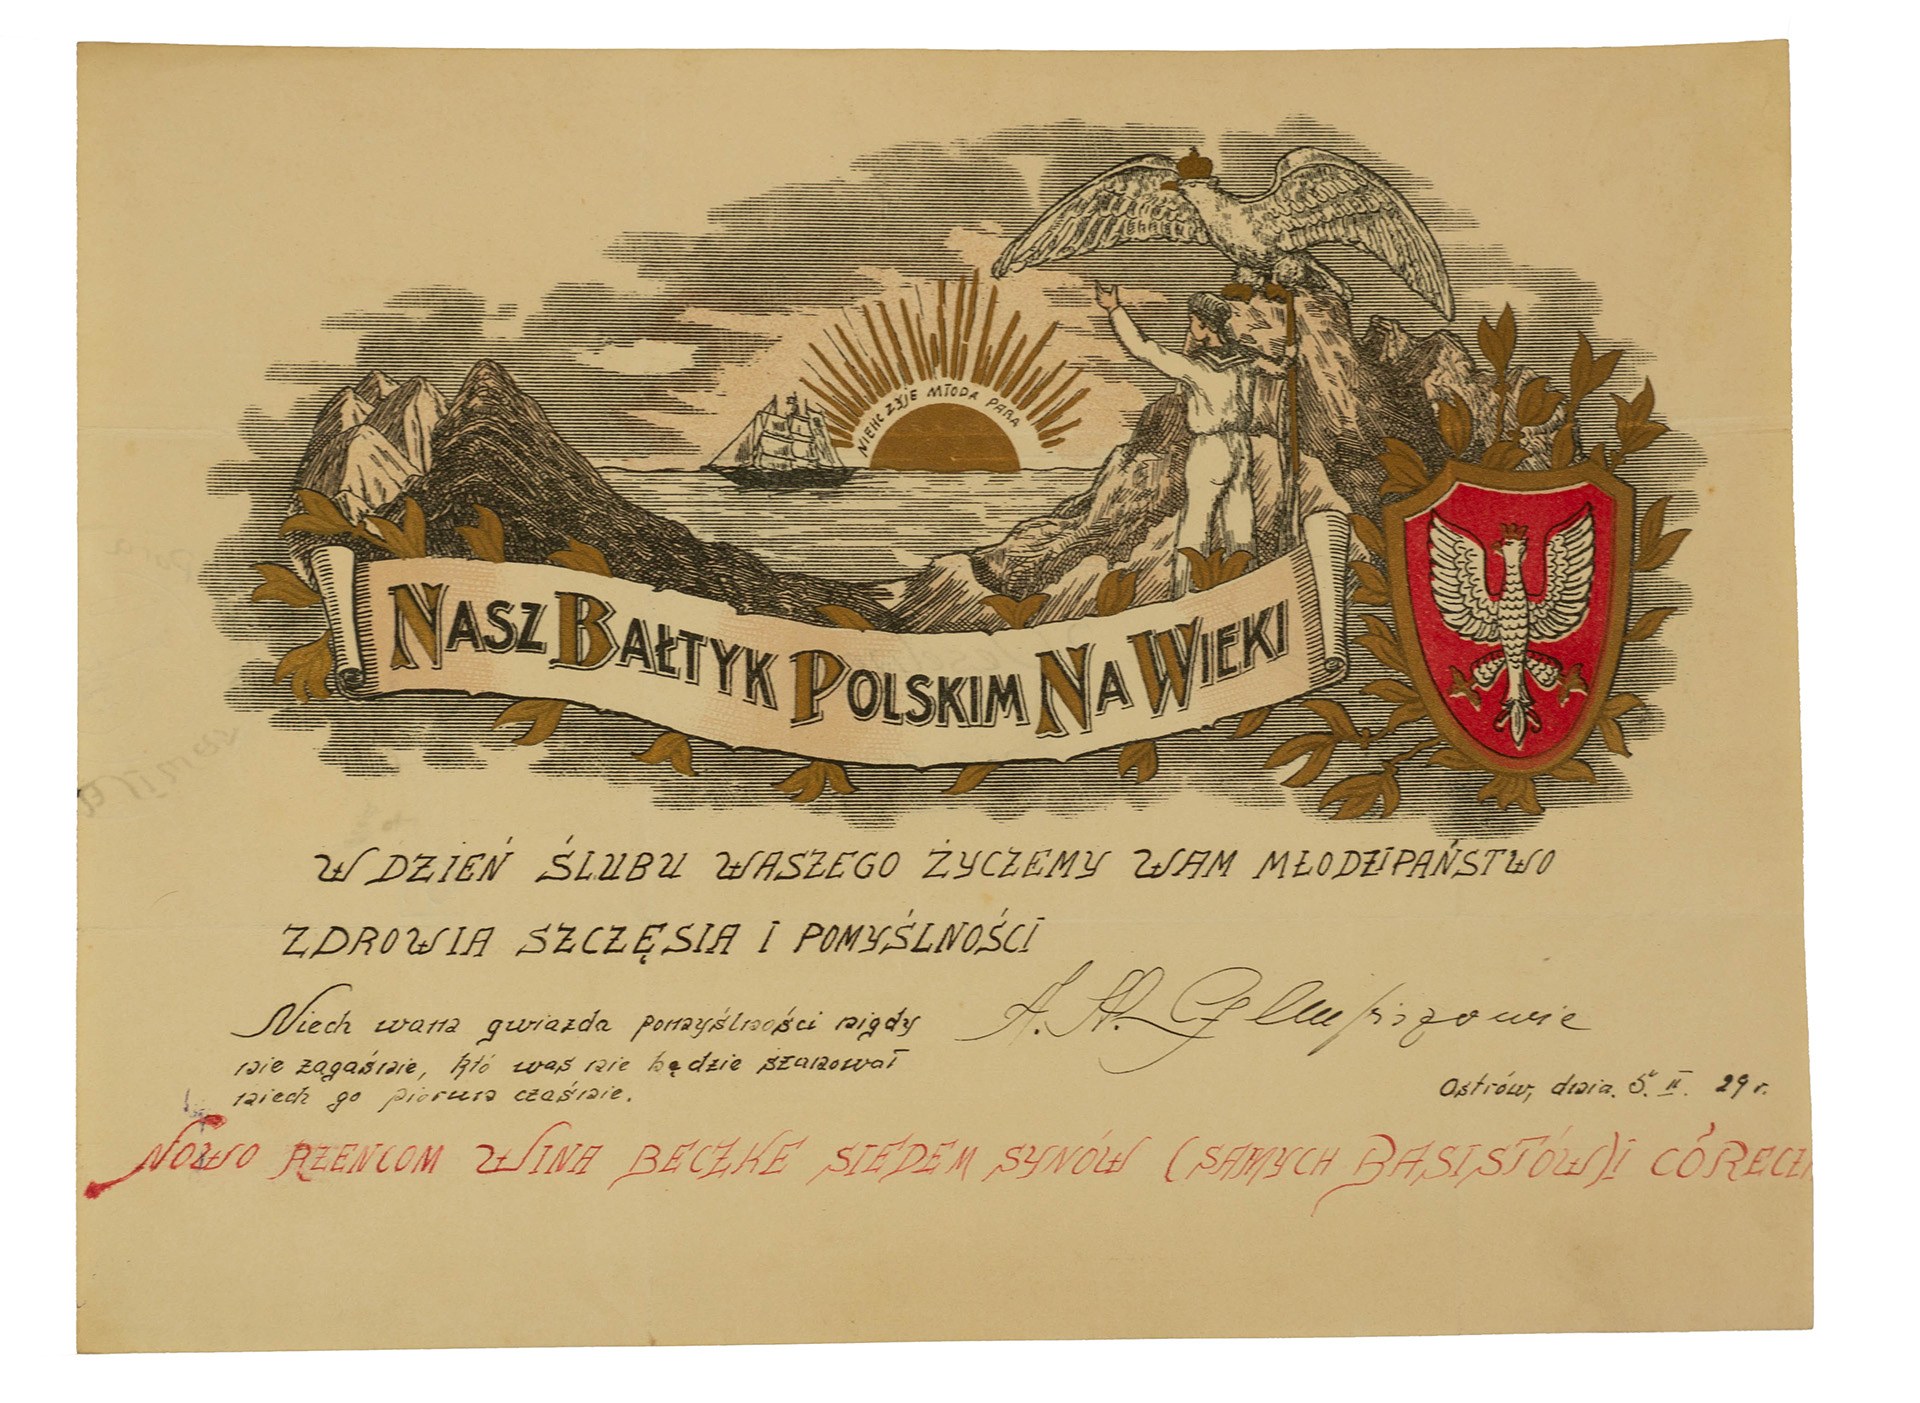 NIEHC ZYJE MŁODA PARA
NASZ BAŁTYK POLSKIM NA WIEKI
W DZIEŃ ŚLUBU WASZEGO ŻYCZEMY WAM MŁODZIPAŃSTWO
ZDROWIA SZCZĘSIA I POMYŚLNOŚCI
Niech wama gwiazda pomyślności nigdy
nie zagaśnie, któ was nie będzie szanował
niech go piorun czaśnie.
A. St.
Ostrów, dnia. 5. II. 29 r.
NOWO RZENCOM WINA BECZKE SIEDEM SYNÓW (SAMYCH BASISTÓW) I CÓRECZK